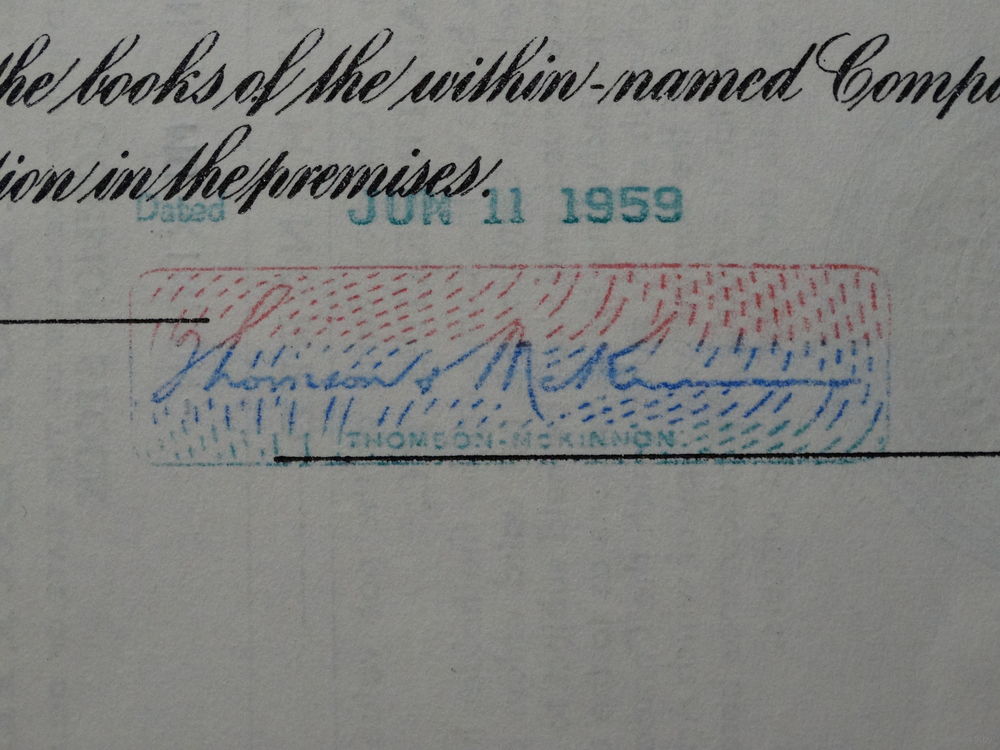 the books of the within-named Compa
tion in the premises.
Dated JUN 11 1959
Thomson & McKinnon
THOMSON-MCKINNON